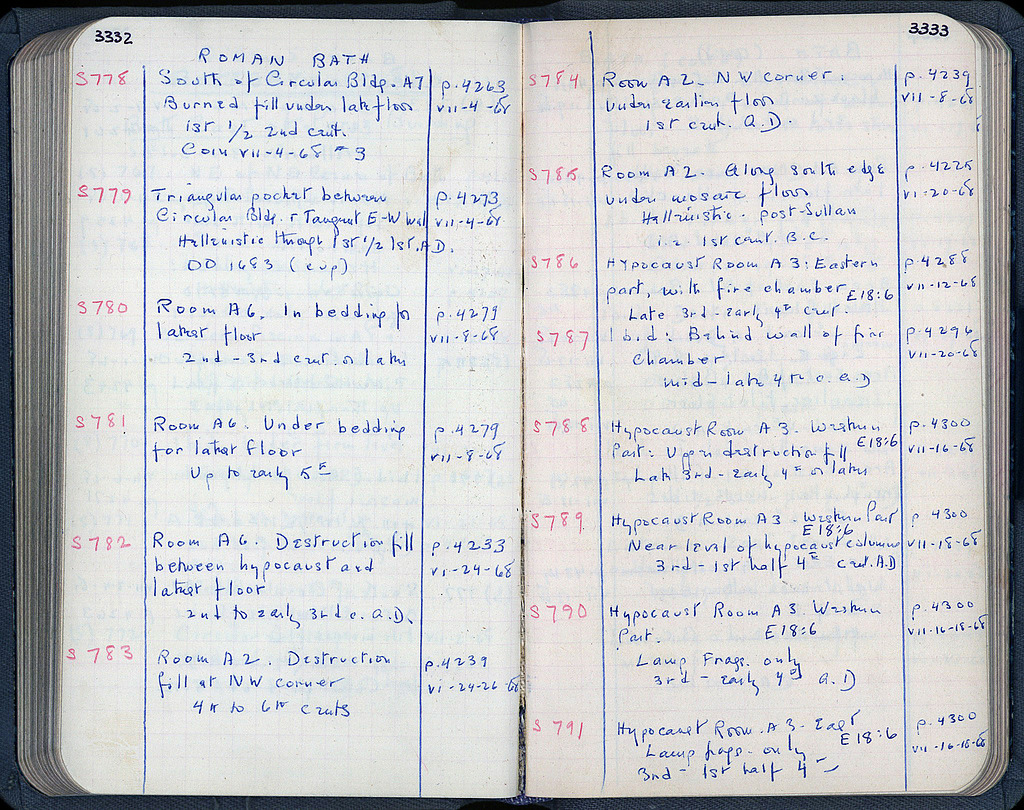 3332
ROMAN BATH
S778 South of Circular Bldg. A7 p.4263
Burned fill under late floor vii-4-68
1st 1/2 2nd cent.
Coin vii-4-68 #3
S779 Triangular pocket between p.4273
Circular Bldg. & Tangent E-W wall vii-4-68
Hellenistic through 1st 1/2 1st A.D.
DD 1683 (cup)
S780 Room A6. In bedding for p.4279
latest floor vii-8-68
2nd - 3rd cent. or later
S781 Room A6. Under bedding p.4279
for latest floor vii-8-68
Up to early 5th
S782 Room A6. Destruction fill p.4233
between hypocaust and vi-24-68
latest floor
2nd to early 3rd c. A.D.
S783 Room A2. Destruction p.4239
fill at NW corner vi-24-26-68
4th to 6th cents
3333
S784 Room A2. NW corner: p.4239
under earlier floor vii-8-68
1st cent. A.D.
S785 Room A2. Along south edge p.4225
under mosaic floor vi-20-68
Hellenistic. post-Sullan
i.e. 1st cent. B.C.
S786 Hypocaust Room A3: Eastern p.4288
part, with fire chamber E18:6 vii-12-68
Late 3rd-early 4th cent.
S787 Ibid: Behind wall of fire p.4296
chamber vii-20-68
mid-late 4th c. A.D
S788 Hypocaust Room A3. Western p.4300
Part: Upper destruction fill E18:6 vii-16-68
Late 3rd-early 4th or later
S789 Hypocaust Room A3. Western Part p 4300
E18:6
Near level of hypocaust columns vii-18-68
3rd-1st half 4th cent. A.D
S790 Hypocaust Room A3. Western p.4300
Part. E18:6 vii-16-18-68
Lamp Frags. only
3rd-early 4th A.D
S791 Hypocaust Room. A3-East p.4300
Lamp frags. only E18:6 vii-16-18-68
3rd-1st half 4th